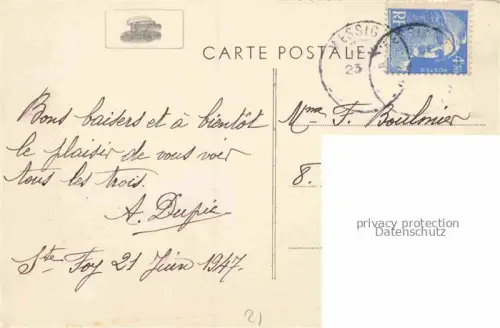 CARTE POSTALE
MESSIG
23
RF
POSTES
Bons baisers et à bientôt
le plaisir de vous voir
tous les trois.
A. Dupie
Ste Foy 21 Juin 1947.
Mme F. Boulmier
8.
privacy protection
Datenschutz
21